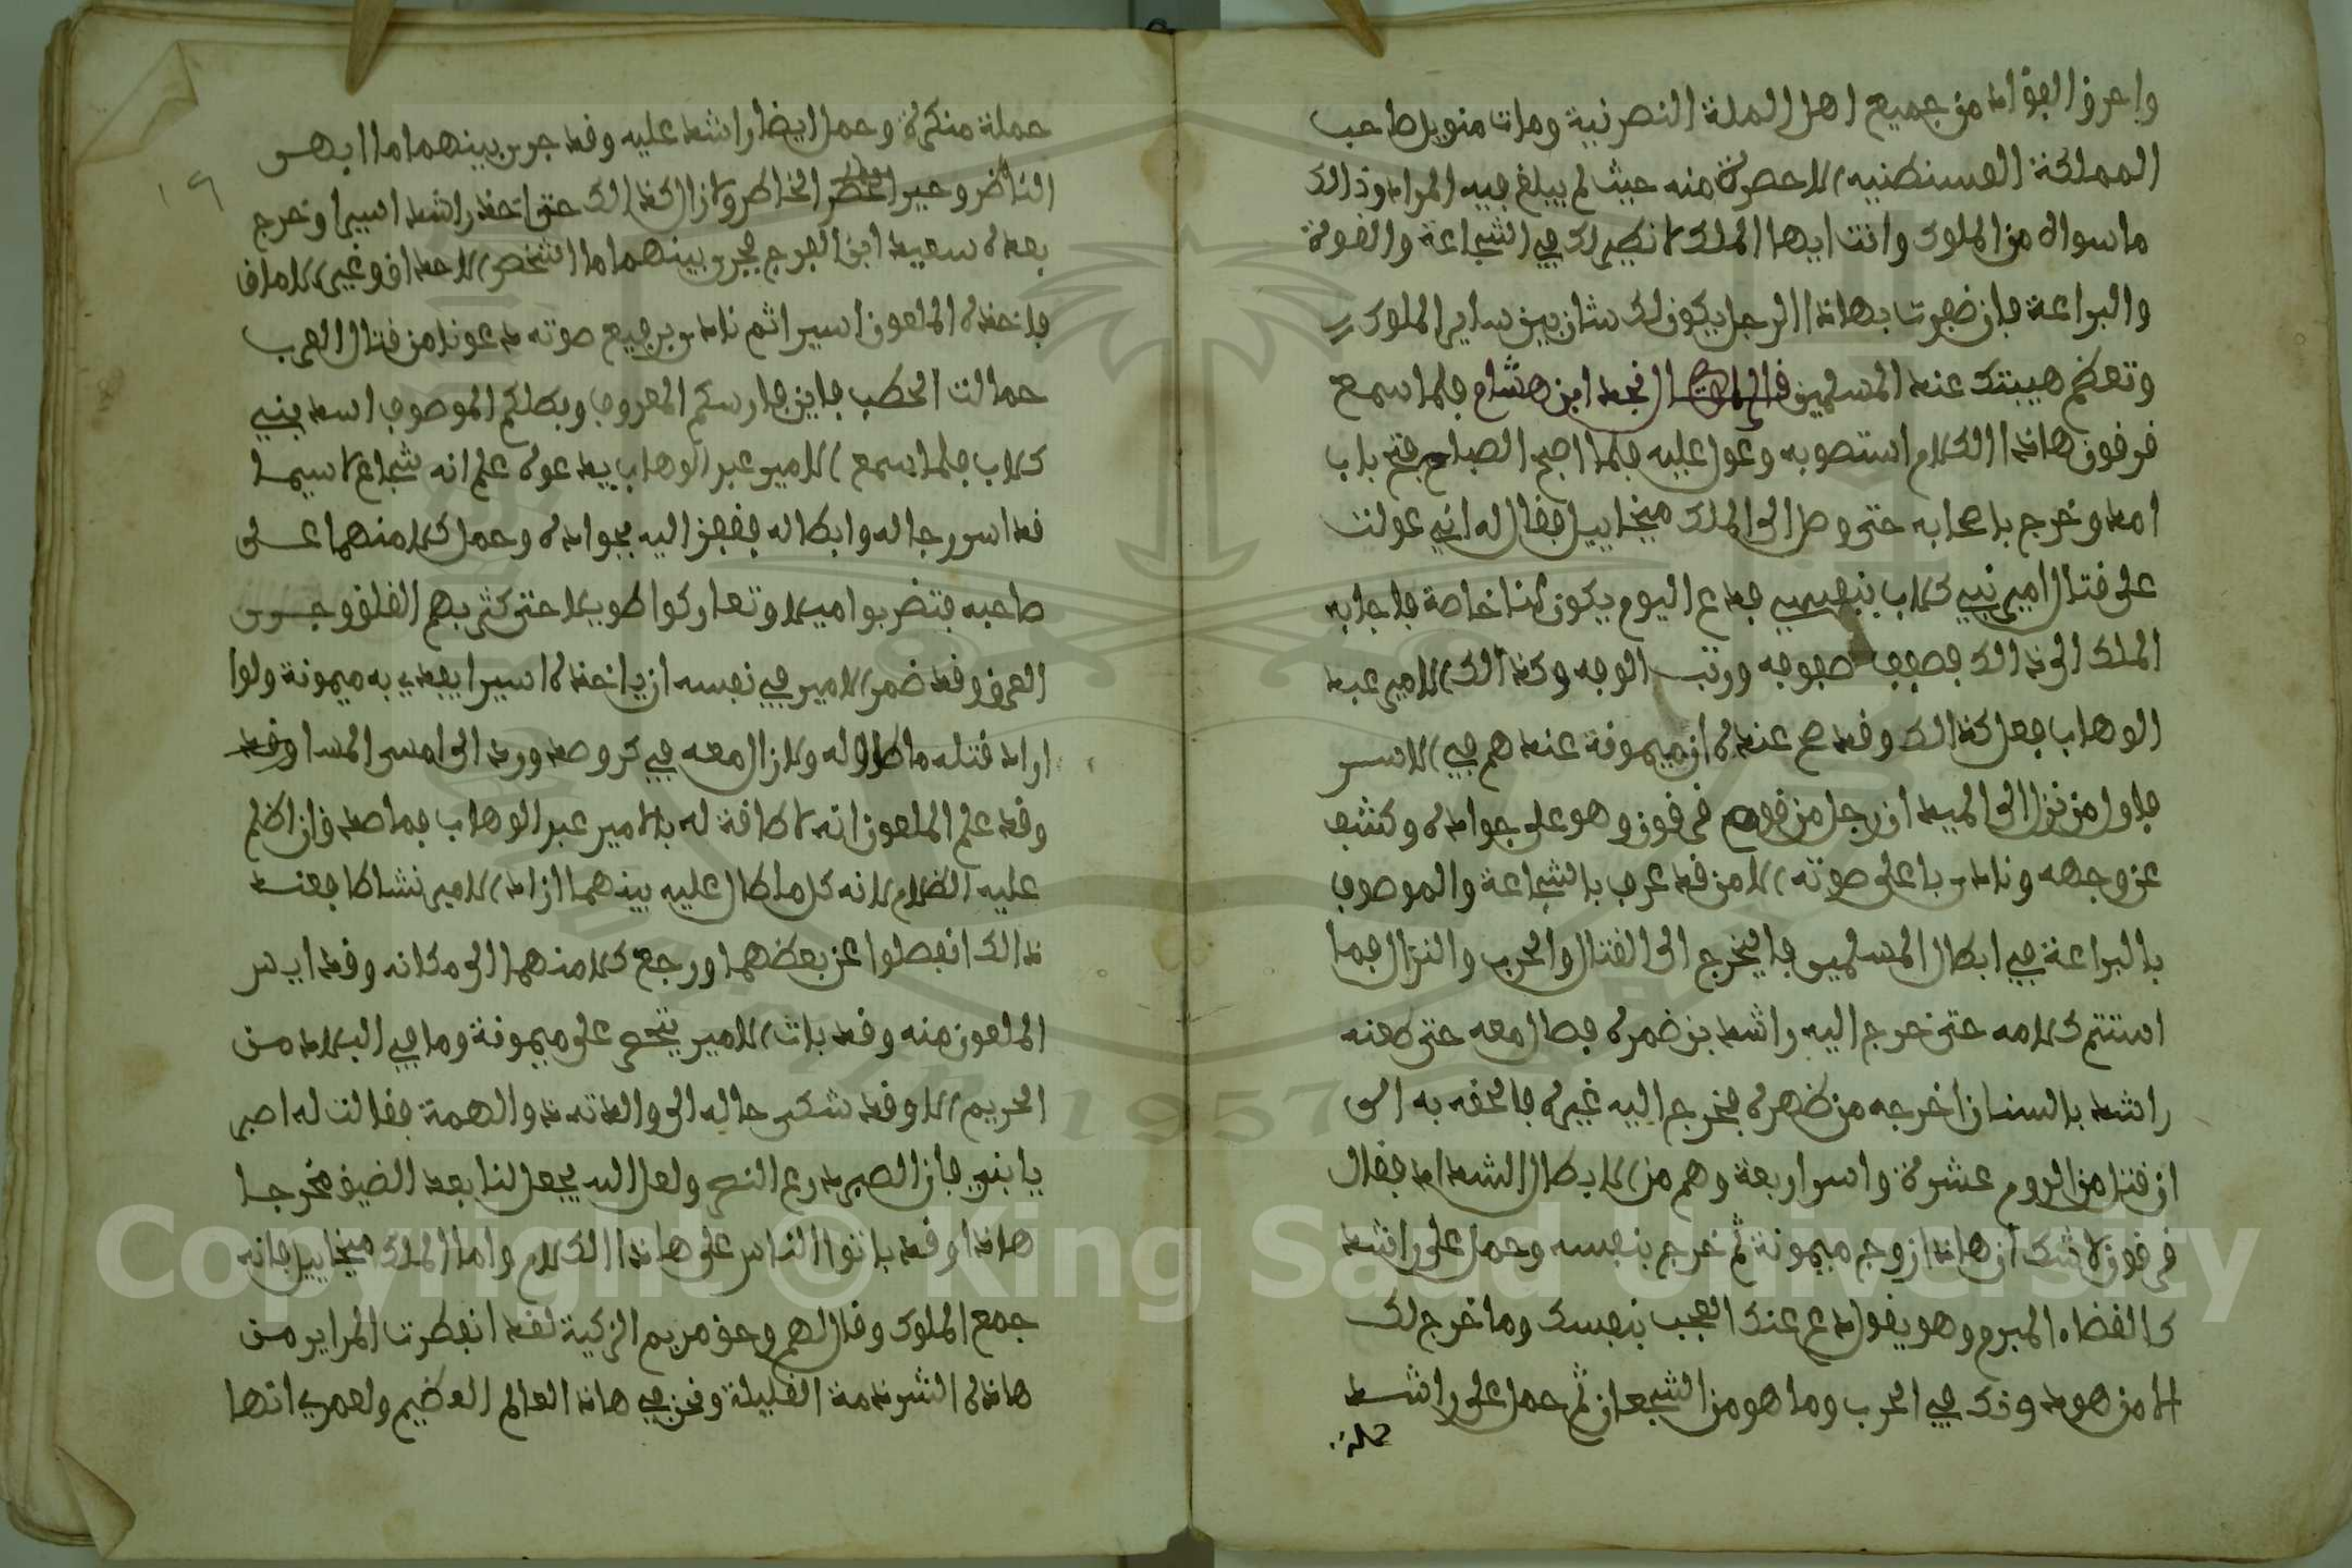 واحرق الفؤاد من جميع اهل الملة النصرنية ومات منويل صاحب
المملكة القسنطنيه الا حصرة منه حيث لم يبلغ فيه المراد وذالك
ما سواك من الملوك وانت ايها الملك لا نظير لك في الشجاعة والقوة
والبراعة فان ضفرت بهاذا الرجل يكون لك شان بين ساير الملوك
وتعظم هيبتك عند المسلمين قال نجد ابن هشام فلما سمع
قرقون هاذا الكلام استصوبه وعول عليه فلما اصبح الصباح فتح باب
امد وخرج باصحابه حتى وصل الى الملك ميخاييل فقال له اني عولت
على قتال امير بني كلاب بنفسي فدع اليوم يكون لنا خاصة فاجابه
الملك الى ذالك فصفف صفوفه ورتب الوفه وكذالك الامير عبد
الوهاب فعل كذالك وقد صح عنده ان ميمونة عندهم في الاسر
فاول من نزل الى الميدان رجل من قوم قرقون وهو على جواده وكشف
عن وجهه ونادى باعلى صوته الا من قد عرف بالشجاعة والموصوف
بالبراعة في ابطال المسلمين فاليخرج الى القتال والحرب والنزال فما
استتم كلامه حتى خرج اليه راشد بن ضمرة فصال معه حتى طعنه
راشد بالسنان اخرجه من ظهره فخرج اليه غيره فالحقه به الى
ان قتل من الروم عشرة واسر اربعة وهم من الابطال الشداد فقال
قرقون لاشك ان هاذا زوج ميمونة ثم خرج بنفسه وحمل على راشد
كالقضاء المبرم وهو يقول دع عنك العجب بنفسك وما خرج لك
الا من هو دونك في الحرب وما هو من الشجعان ثم حمل على راشد
حملة
حملة منكرة وحمل ايضا راشد عليه وقد جرى بينهما ما ابهر
الناظر وحير الخاطر ولا زال كذالك حتى اخذ راشد اسيرا وخرج
بعده سعيد ابن الفرج فجرى بينهما ما اشخص الاحداق وغير الاماق
فاخذه الملعون اسيرا ثم نادى برفيع صوته دعونا من قتال العرب
حمالت الحطب فاين فارسكم المعروف وبطلكم الموصوف اسد بني
كلاب فلما سمع الامير عبد الوهاب يدعوه علم انه شجاع لاسيما
قد اسر رجاله وابطاله فقفز اليه بجواده وحمل كلا منهما على
صاحبه فتضربوا ميلا وتعاركوا طويلا حتى كثر بهم القلق وجرى
العرق وقد ضمر الامير في نفسه ان ياخذه اسيرا يفدي به ميمونة ولو
اراد قتله ما طاوله ولا زال معه في كر وصد ورد الى امسى المسا
وقد علم الملعون انه لا طاقة له بالامير عبد الوهاب فما صدق ان اظلم
عليه الظلام لانه كل ما طال عليه بينهما ازاد الامير نشاطا فعند
ذالك انفصلوا عن بعظهما ورجع كلا منهما الى مكانه وقد ايس
الملعون منه وقد بات الامير يتحسر على ميمونة وما في البلاد من
الحريم الا وقد شكى حاله الى والدته ذو الهمة فقالت له اصبر
يا بني فان الصبر درع النصر ولعل الله يجعل لنا بعد الضيق مخرجا
هاذا وقد باتوا الناس على هاذا الكلام واما الملك ميخاييل فانه
جمع الملوك وقال لهم وحق مريم الزكية لقد انفطرت المراير من
هاذه الشرذمة القليلة ونحن في هاذ العالم العظيم ولعمري انها
١٩
Copyright © King Saud University
1957